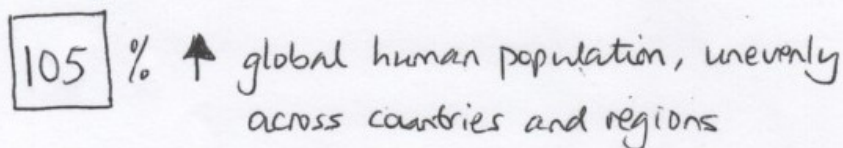 105 % ↑ global human population, unevenly
across countries and regions